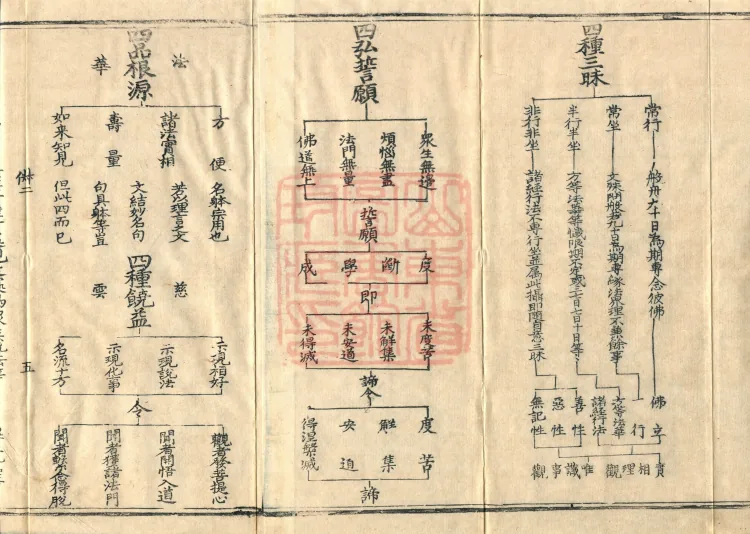 四種三昧
常行 般舟九十日爲期專念彼佛
常坐 文殊問般若九十日爲期專緣法界理不兼餘事
半行半坐 方等法華懺限期不定或三七日七日十日等
非行非坐 諸經行法不專行坐並屬此攝即隨自意三昧
佛立
行
方等法華
諸經行法
善性
惡性
無記性
實相理觀
唯識事觀
四弘誓願
衆生無邊
煩惱無盡
法門無量
佛道無上
誓願
度
斷
學
成
即
未度苦
未解集
未安道
未得滅
諦令
度苦
解集
安道
得涅槃滅
諦
法華
四品根源
方便 名躰宗用也
諸法實相 若以理言之文
壽量 文結妙名句
句具躰等豈
如来知見 但此四而已
慈雲
四種饒益
示現相好
示現說法
示現化事
名流十方
令
觀者發菩提心
聞者開悟入道
聞者獲諸法門
聞者繫念得脫
五